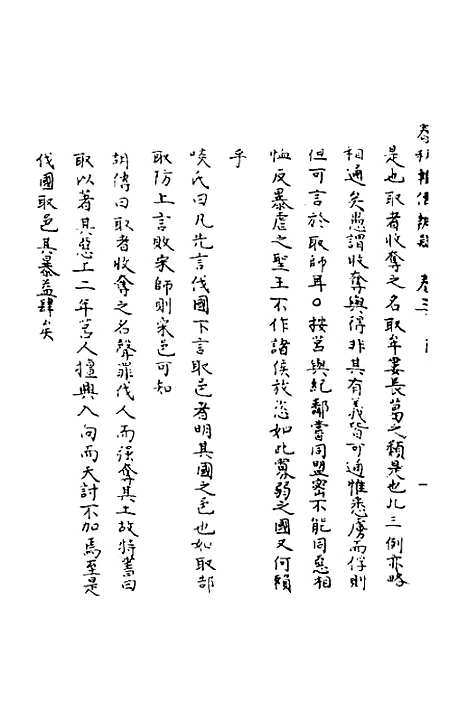 春秋輯傳辨疑 卷三
是也取者收奪之名取牟婁長葛之類是也凡三例亦略
相通矣愚謂收奪與得非其有義皆可通惟悉虜而俘則
但可言於取師耳○按莒與紀鄰嘗同盟密不能同惡相
恤反暴虐之聖王不作諸侯放恣如此寡弱之國又何賴
乎
啖氏曰凡先言伐國下言取邑者明其國之邑也如取郜
取防上言敗宋師則宋邑可知
胡傳曰取者收奪之名聲罪伐人而强奪其土故特書曰
取以著其惡上二年莒人擅興入向而天討不加焉至是
伐國取邑其暴益肆矣